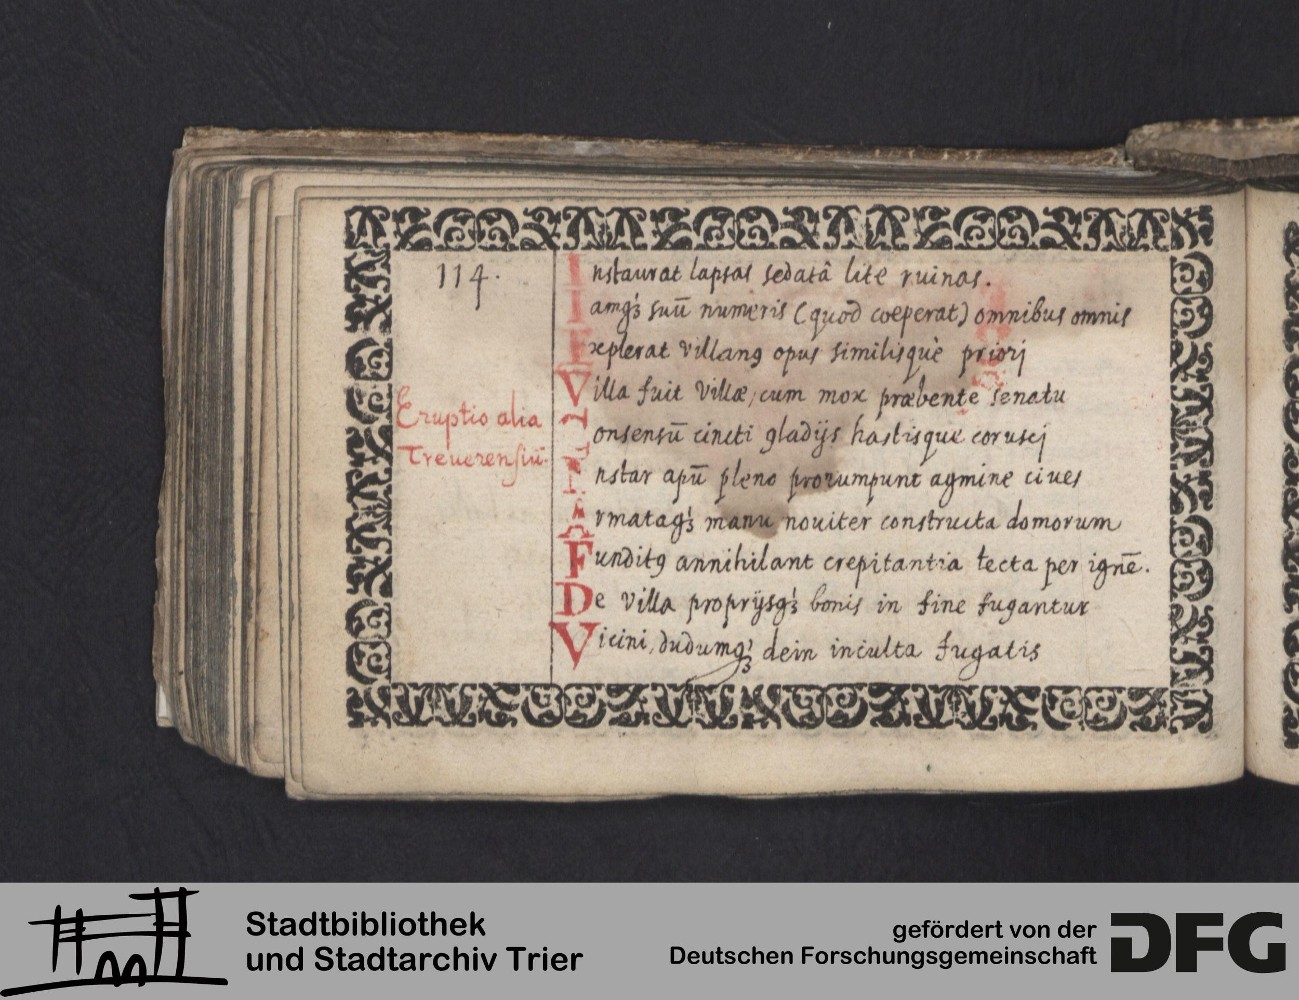 114.
Instaurat lapsas sedatâ lite ruinas.
Iamq́ꝫ suū numeris (quod coeperat) omnibus omnis
Explerat villanꝰ opus similisquè priori
Villa fuit villæ, cum mox præbente senatu
Eruptio alia
Treuerensiū.
Consensū cincti gladijs hastisque corusci
Instar apū pleno prorumpunt agmine ciues
Armataq́ꝫ manu nouiter constructa domorum
Funditꝰ annihilant crepitantia tecta per ignē.
De villa proprijsq́ꝫ bonis in fine fugantur
Vicini, dudumq́ꝫ dein inculta fugatis
Stadtbibliothek
und Stadtarchiv Trier
gefördert von der
Deutschen Forschungsgemeinschaft
DFG